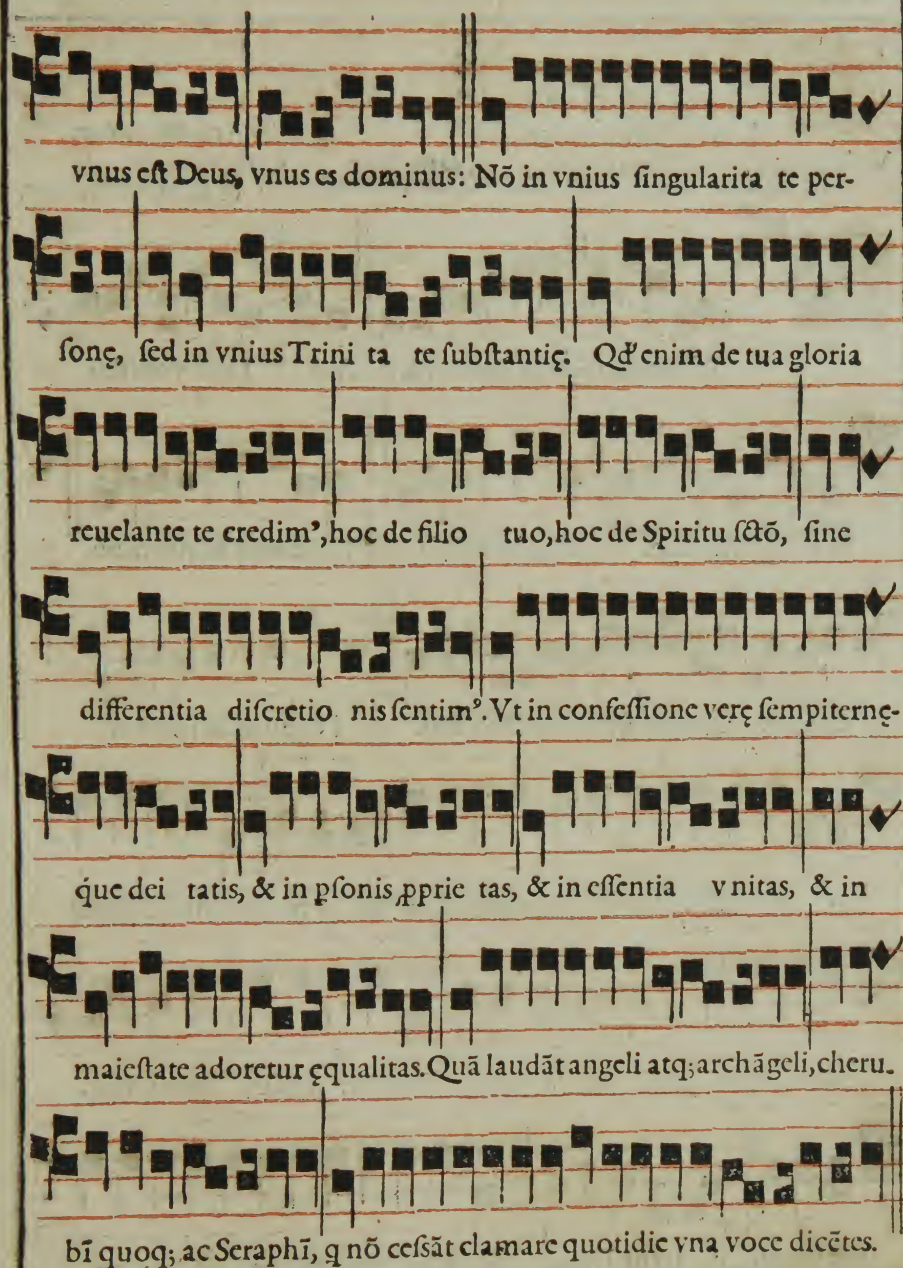 vnus eſt Deus, vnus es dominus: Nō in vnius ſingularita te per-
ſonę, ſed in vnius Trini ta te ſubſtantię. Qđ enim de tua gloria
reuelante te credimꝰ, hoc de filio tuo, hoc de Spiritu ſctō, ſine
differentia diſcretio nis ſentimꝰ. Vt in confeſſione verę ſempiternę-
q́ue dei tatis, & in ꝑſonis ꝓprie tas, & in eſſentia vnitas, & in
maieſtate adoretur ęqualitas. Quā laudāt angeli atq; archāgeli, cheru-
bī quoq; ac Seraphī, q nō ceſsāt clamare quotidie vna voce dicētes.